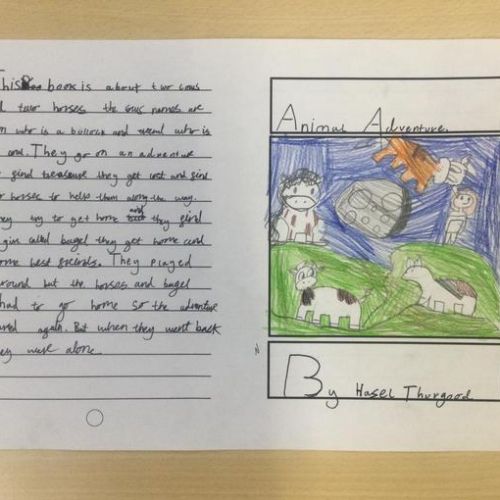 This book is about two cows
two horses the cows names are
who is a bullock and who is
cow. They go on an adventure
find treasure they get lost and find
horses to help them along the way.
They try to get home and they find
called bagel they get home and
best friends. They played
around but the horses and bagel
had to go home so the adventure
again. But when they went back
they were alone.
Animal Adventure.
By Hasel Thurgood